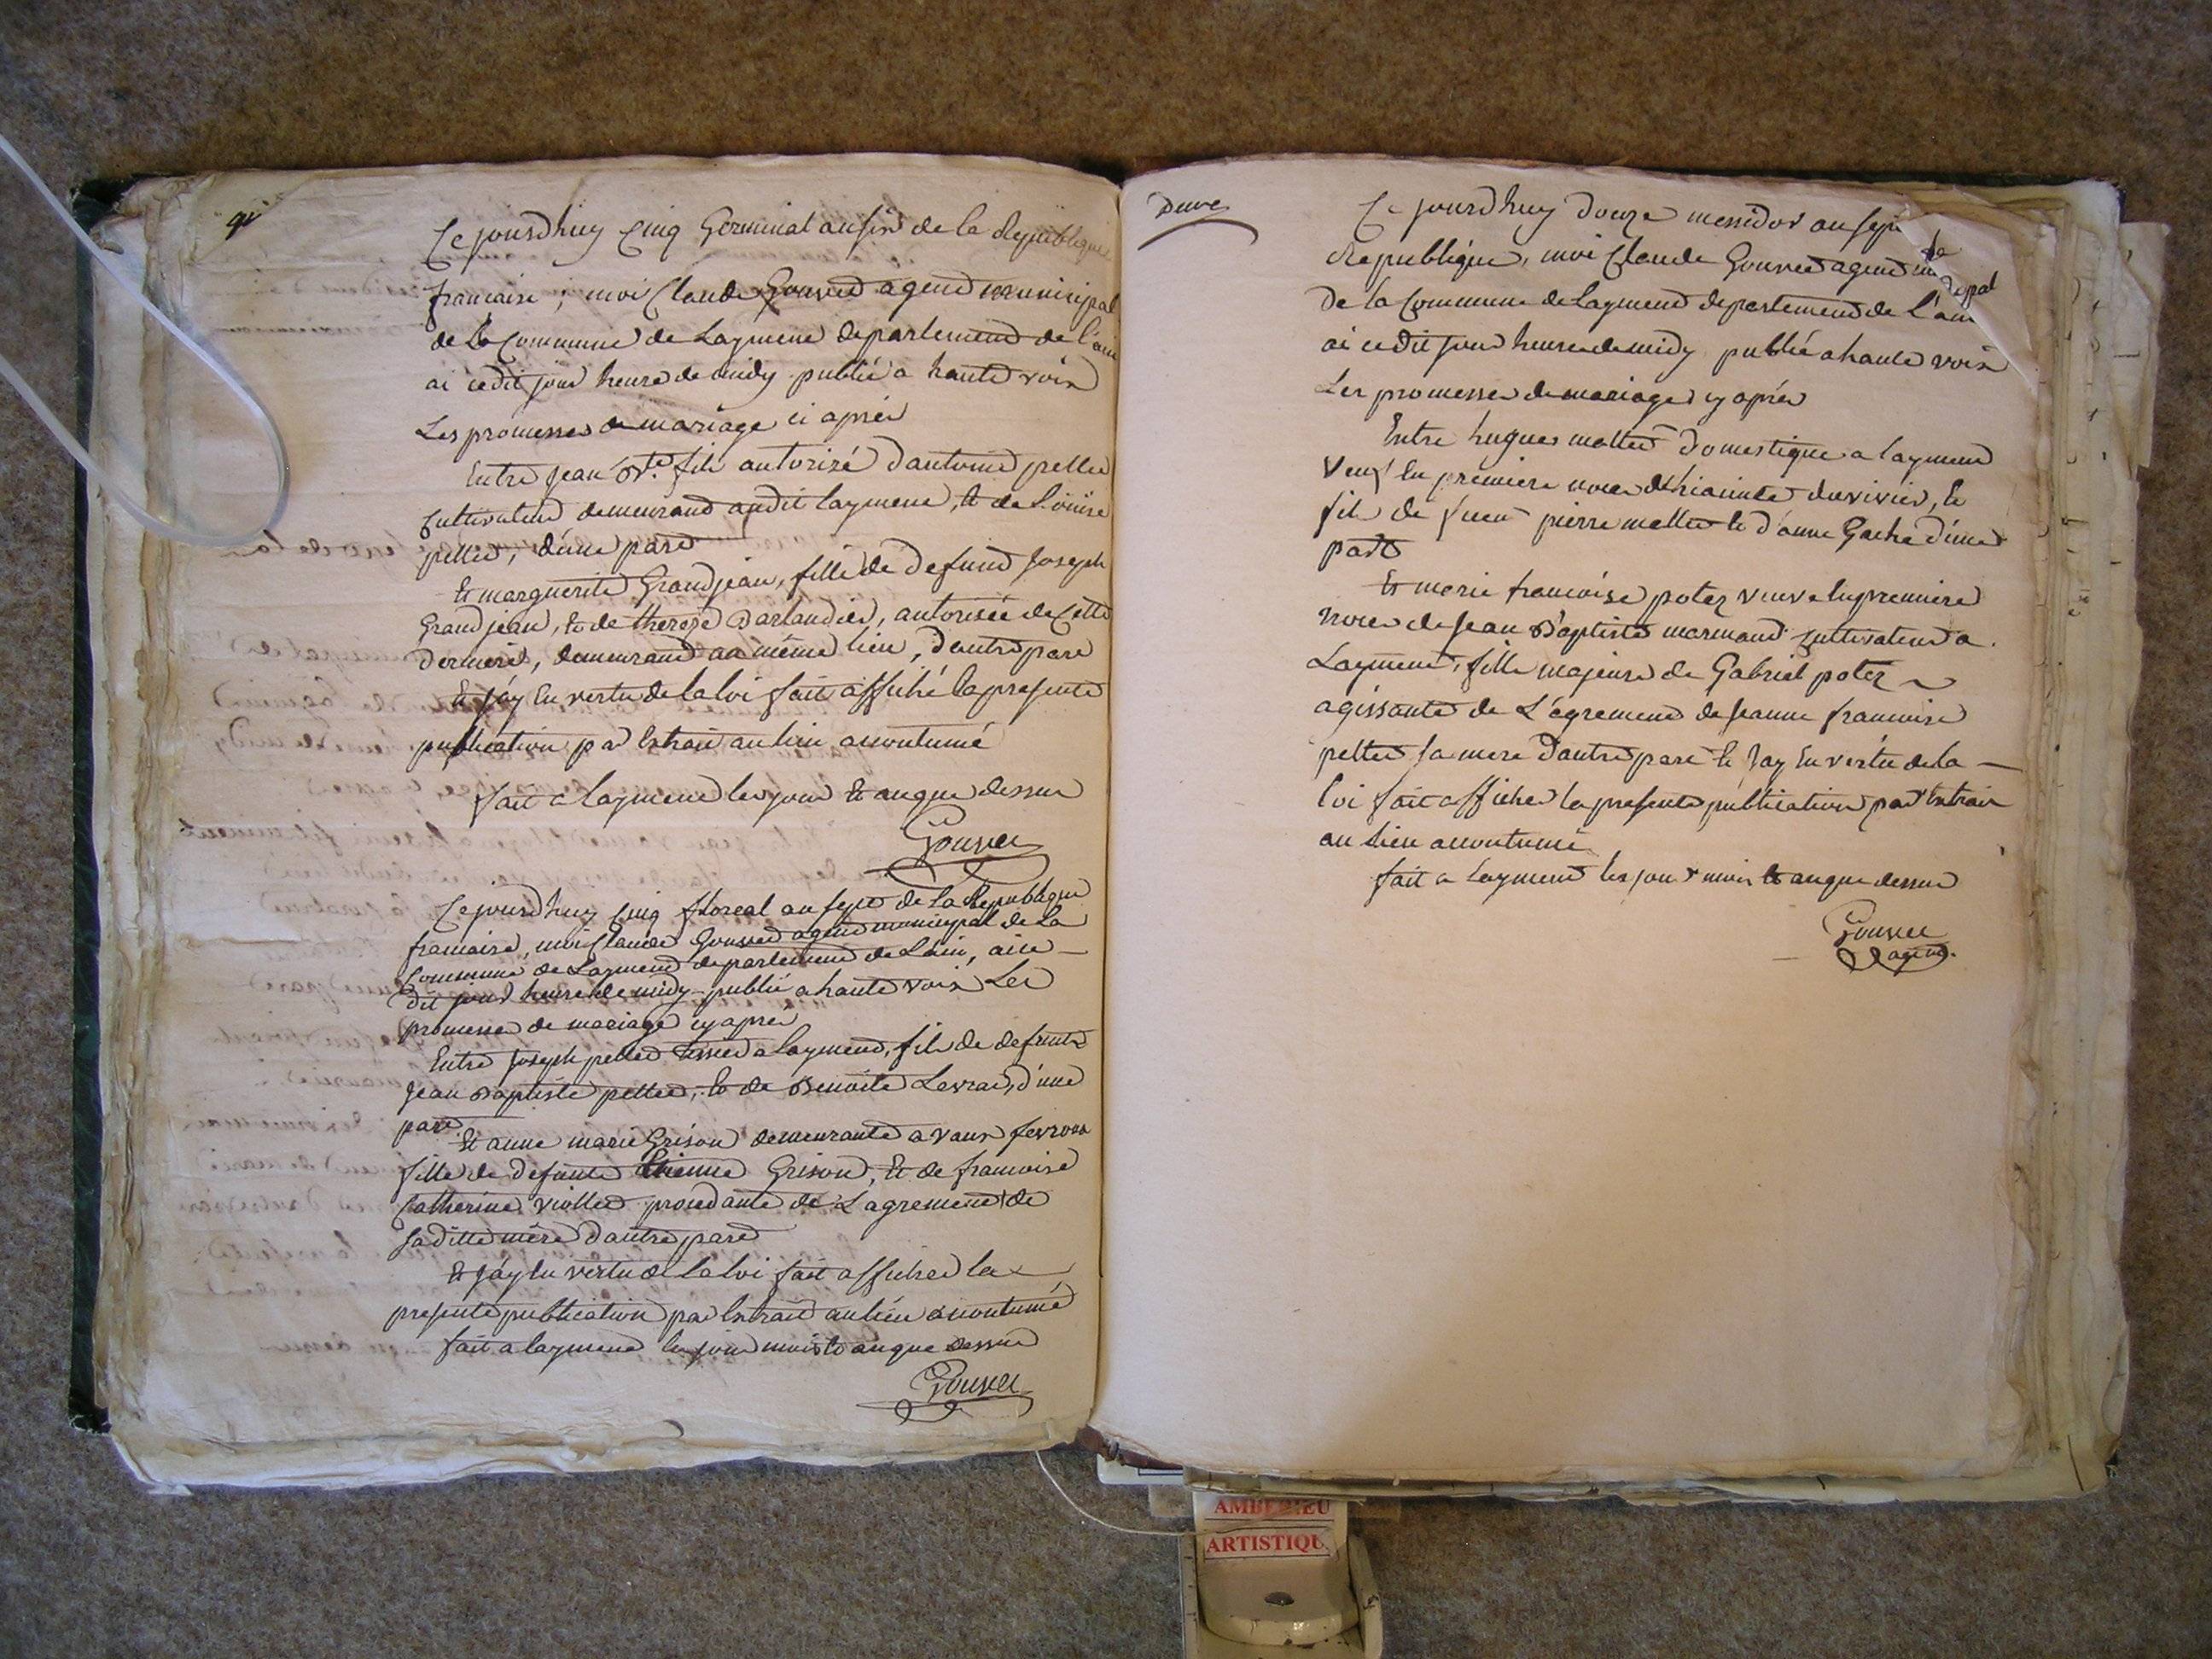 Ce jourdhuy Cinq Germinal an six de la Republique
francaise, moi Claude Gouvet agent municipal
de la Commune de Layment departement de l'ain
ai cedit jour heure de midy publié a haute voix
Les promesses de mariage ci après
Entre Jean Bte. fils autorizé d'antoine pellet
Cultivateur demeurant audit layment, et de Louise
pellet, d'une part
Et marguerite Grandjean, fille de defunt Joseph
Grandjean, et de therese Darlandier, autorisée de Cette
derniere, demeurant au même lieu, d'autre part
Et J'ay En vertu de la loi fait affiché la presente
publication par Extrait au lieu accoutumé
fait a layment les jour Et an que dessus
Gouvet
Ce jourdhuy Cinq floreal an sept de la Republique
francaise, moi Claude Gouvet agent municipal de La
Commune de Layment departement de L'ain, ai ce
dit jour heure de midy publié a haute voix Les
promesses de mariage cy apres
Entre Joseph pellet tissier a layment, fils de defunts
Jean Baptiste pellet, et de Benoite Levrat, d'une
part
Et anne marie Grison demeurante a vaux fevroux
fille de defunte Etienne Grison, Et de francoise
Catherine Viollet procedante de L'agrement de
sa ditte mère d'autre part
Et J'ay En vertu de la loi fait afficher la
presente publication par Extrait au lieu accoutumé
fait a layment les jour mois et an que dessus
Gouvet
Deuve
Ce jourdhuy douze messidor an sept de
Republique, moi Claude Gouvet agent
de la Commune de layment departement de l'ain
ai cedit jour heure de midy publié a haute voix
Les promesses de mariage cy aprés
Entre hugues mollet domestique a layment
veuf En premiere noces d'hiacinte duvivier, et
fils de feu pierre mollet et d'anne Gache d'une
part
Et marie francoise potez veuve En premiere
noces de Jean Baptiste marmand Cultivateur a
Layment, fille majeure de Gabriel potez
agissante de L'agrement de Jeanne francoise
pellet sa mere d'autre part Et J'ay En vertu de la
loi fait afficher la presente publication par Extrait
au lieu accoutumé
fait a layment les jour & mois Et an que dessus
Gouvet
agent.
AMBERIEU
ARTISTIQU